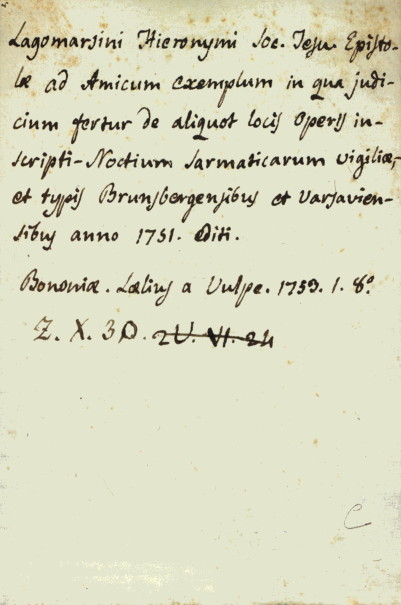 Lagomarsini Hieronymi Soc. Jesu. Episto-
læ ad Amicum exemplum in qua judi-
cium fertur de aliquot locis Operis in-
scripti-Noctium Sarmaticarum vigiliæ,
et typis Brunsbergensibus et Varsavien-
sibus anno 1751. editi.
Bononiæ. Lælius a Vulpe. 1753. 1. 8°
Z. X. 30. 2U. VI. 24
C